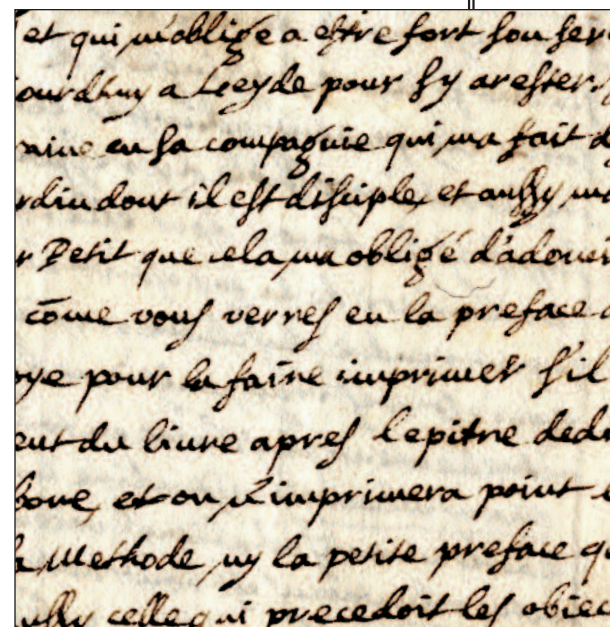 et qui m'oblige a estre fort son ser
ourdhuy a Leyde pour sy arester
en sa compagnie qui ma fait d
rdin dont il est disciple, et aussy ma
r Petit que cela ma obligé d'adouci
cōme vous verres en la preface
oye pour la faire imprimer s'il
ent du liure apres lepitre ded
bone, et on n'imprimera point
a Methode ny la petite preface qu
ussy celle qui precedoit les obiec